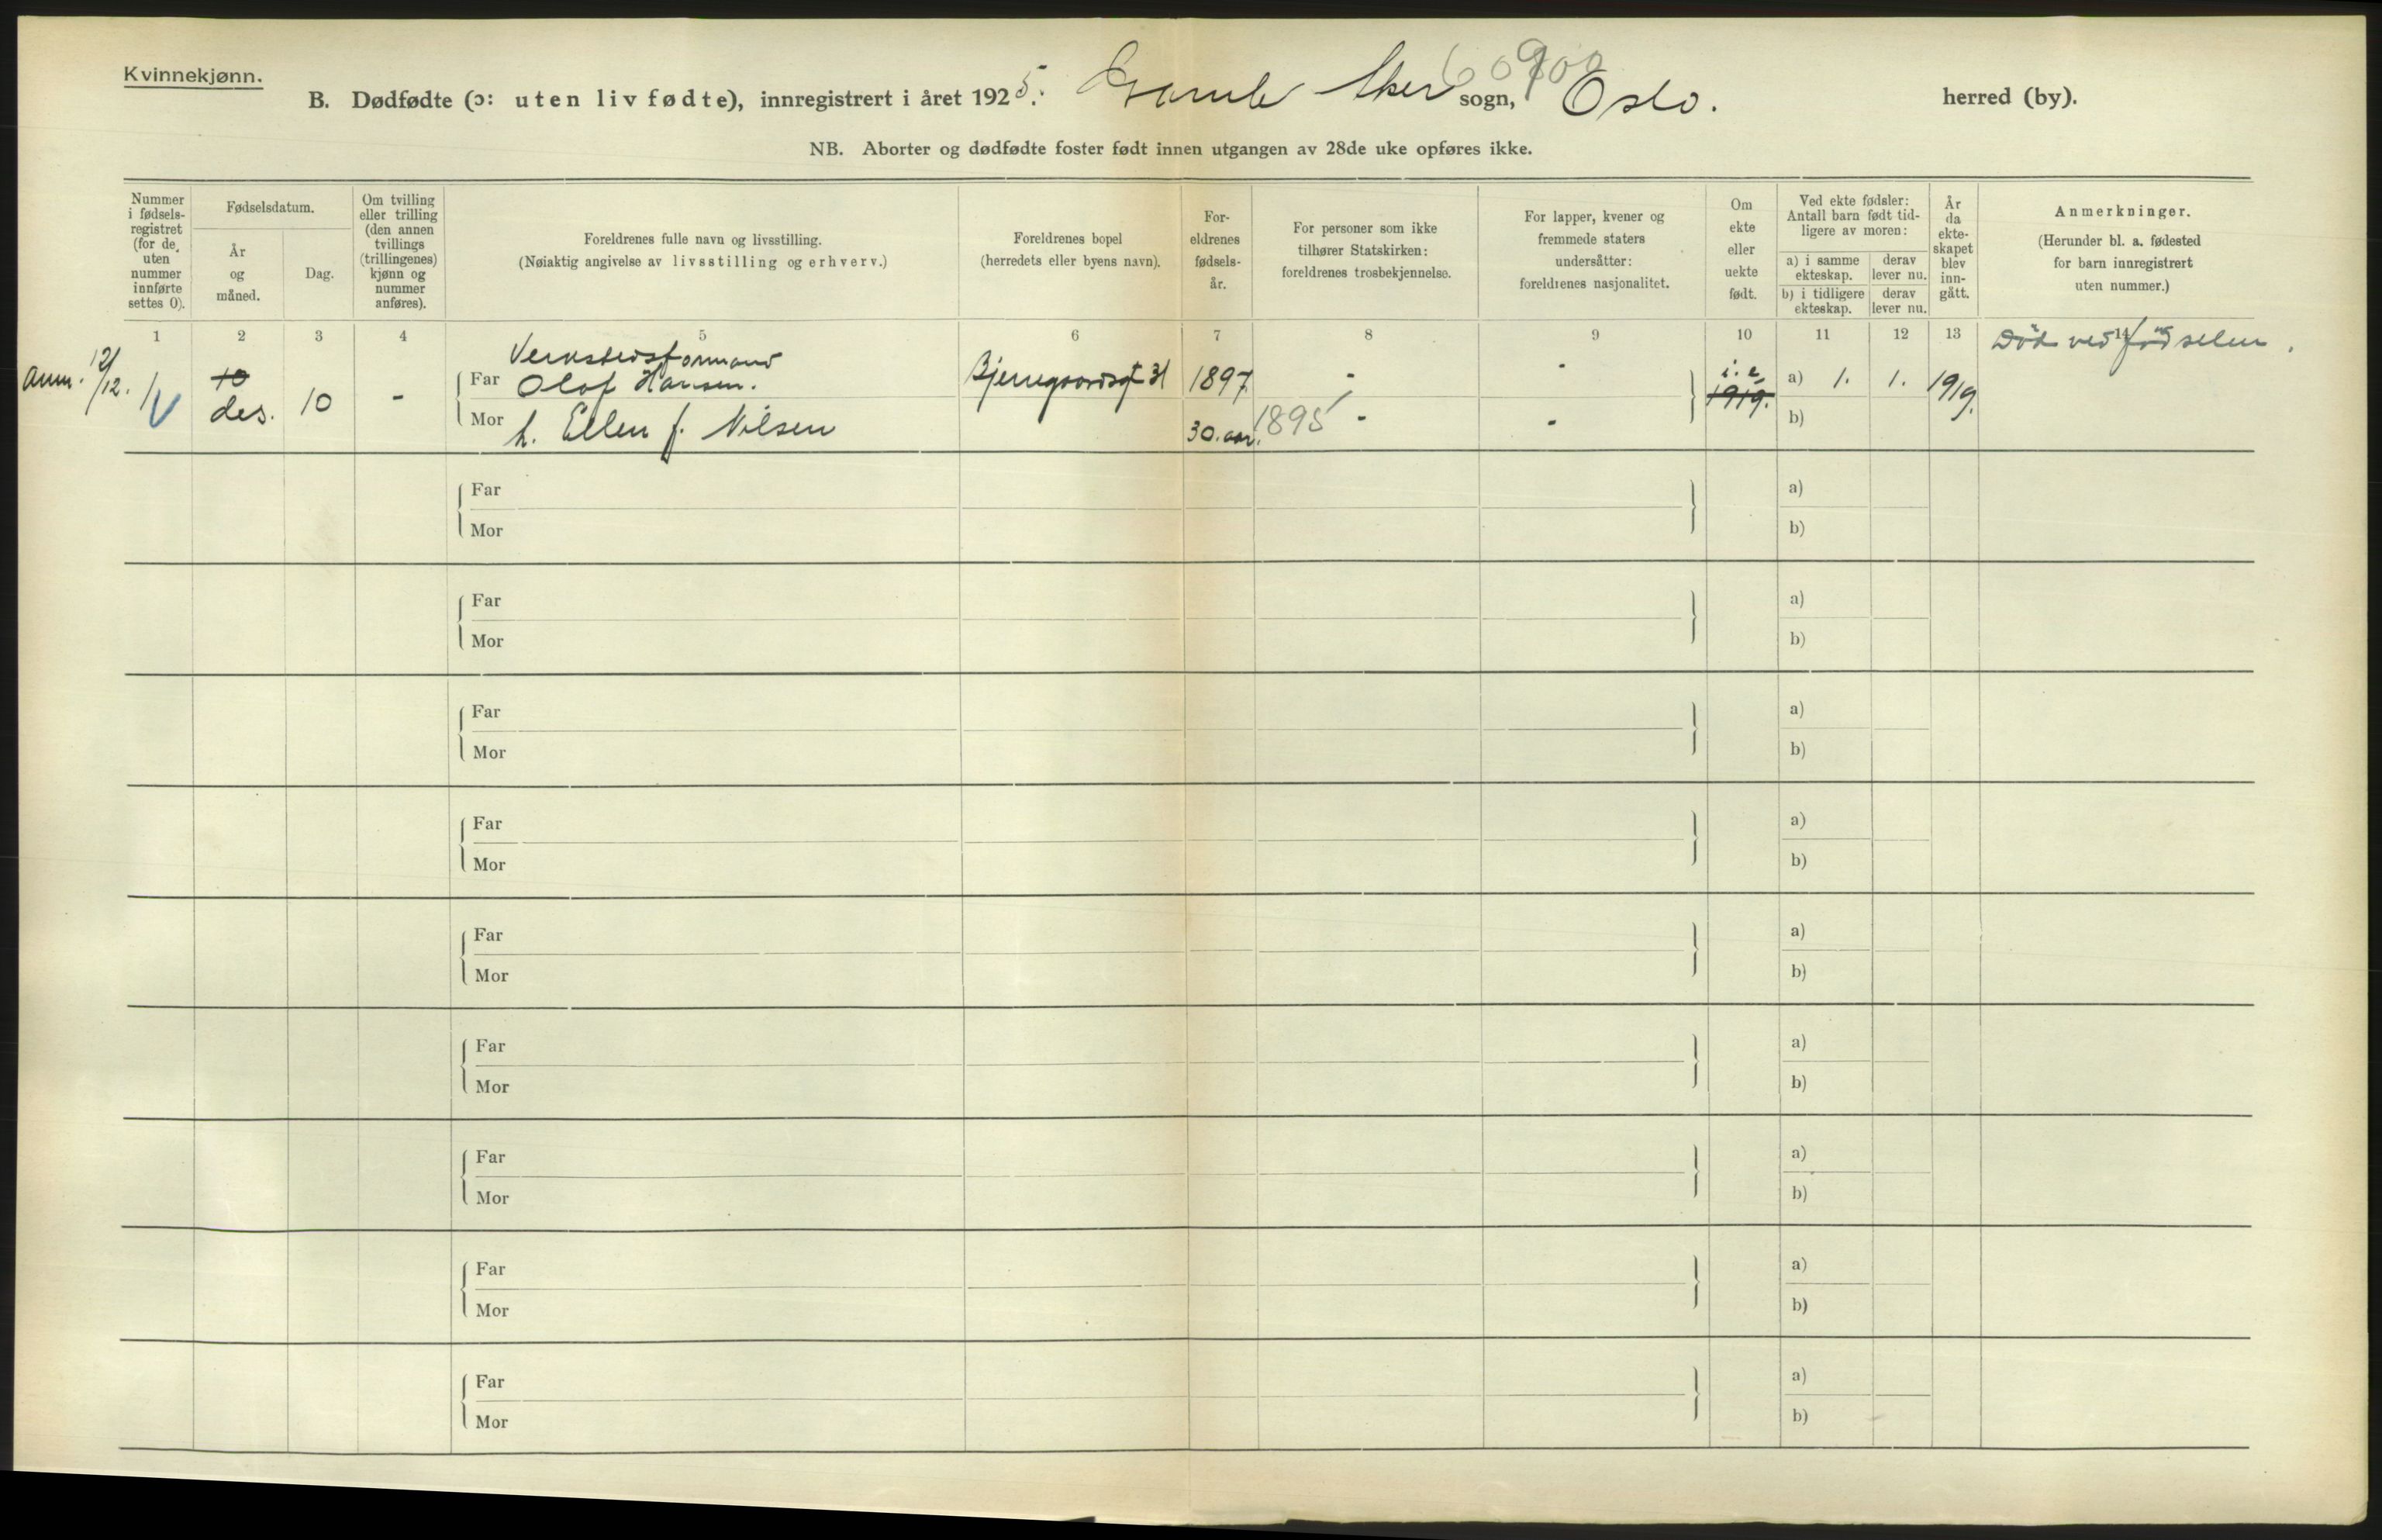 Kvinnekjønn.
60900
B. Dødfødte (ɔ: uten liv fødte), innregistrert i året 1925. Gamle Aker sogn, Oslo. herred (by).
NB. Aborter og dødfødte foster født innen utgangen av 28de uke opføres ikke.
Nummer i fødsels-registret (for de uten nummer innførte settes 0).
Fødselsdatum.
År og måned.
Dag.
Om tvilling eller trilling (den annen tvillings (trillingenes) kjønn og nummer anføres).
Foreldrenes fulle navn og livsstilling.
(Nøiaktig angivelse av livsstilling og erhverv.)
Foreldrenes bopel
(herredets eller byens navn).
For-eldrenes fødsels-år.
For personer som ikke tilhører Statskirken: foreldrenes trosbekjennelse.
For lapper, kvener og fremmede staters undersåtter: foreldrenes nasjonalitet.
Om ekte eller uekte født.
Ved ekte fødsler: Antall barn født tid-ligere av moren:
a) i samme ekteskap.
derav lever nu.
b) i tidligere ekteskap.
derav lever nu.
År da ekte-skapet blev inn-gått.
Anmerkninger.
(Herunder bl. a. fødested for barn innregistrert uten nummer.)
1 2 3 4 5 6 7 8 9 10 11 12 13 14
Anm. 12/12. 1 10 des. 10 -
Verkstedsformand
Far Olaf Hansen. Bjerregaardsgt 31 1897 - - i. e. 1919. a) 1. 1. 1919.
Død ved fødselen.
Mor h. Ellen f. Nilsen 30. aar. 1895 - - b)
Far a)
Mor b)
Far a)
Mor b)
Far a)
Mor b)
Far a)
Mor b)
Far a)
Mor b)
Far a)
Mor b)
Far a)
Mor b)
Far a)
Mor b)
Far a)
Mor b)